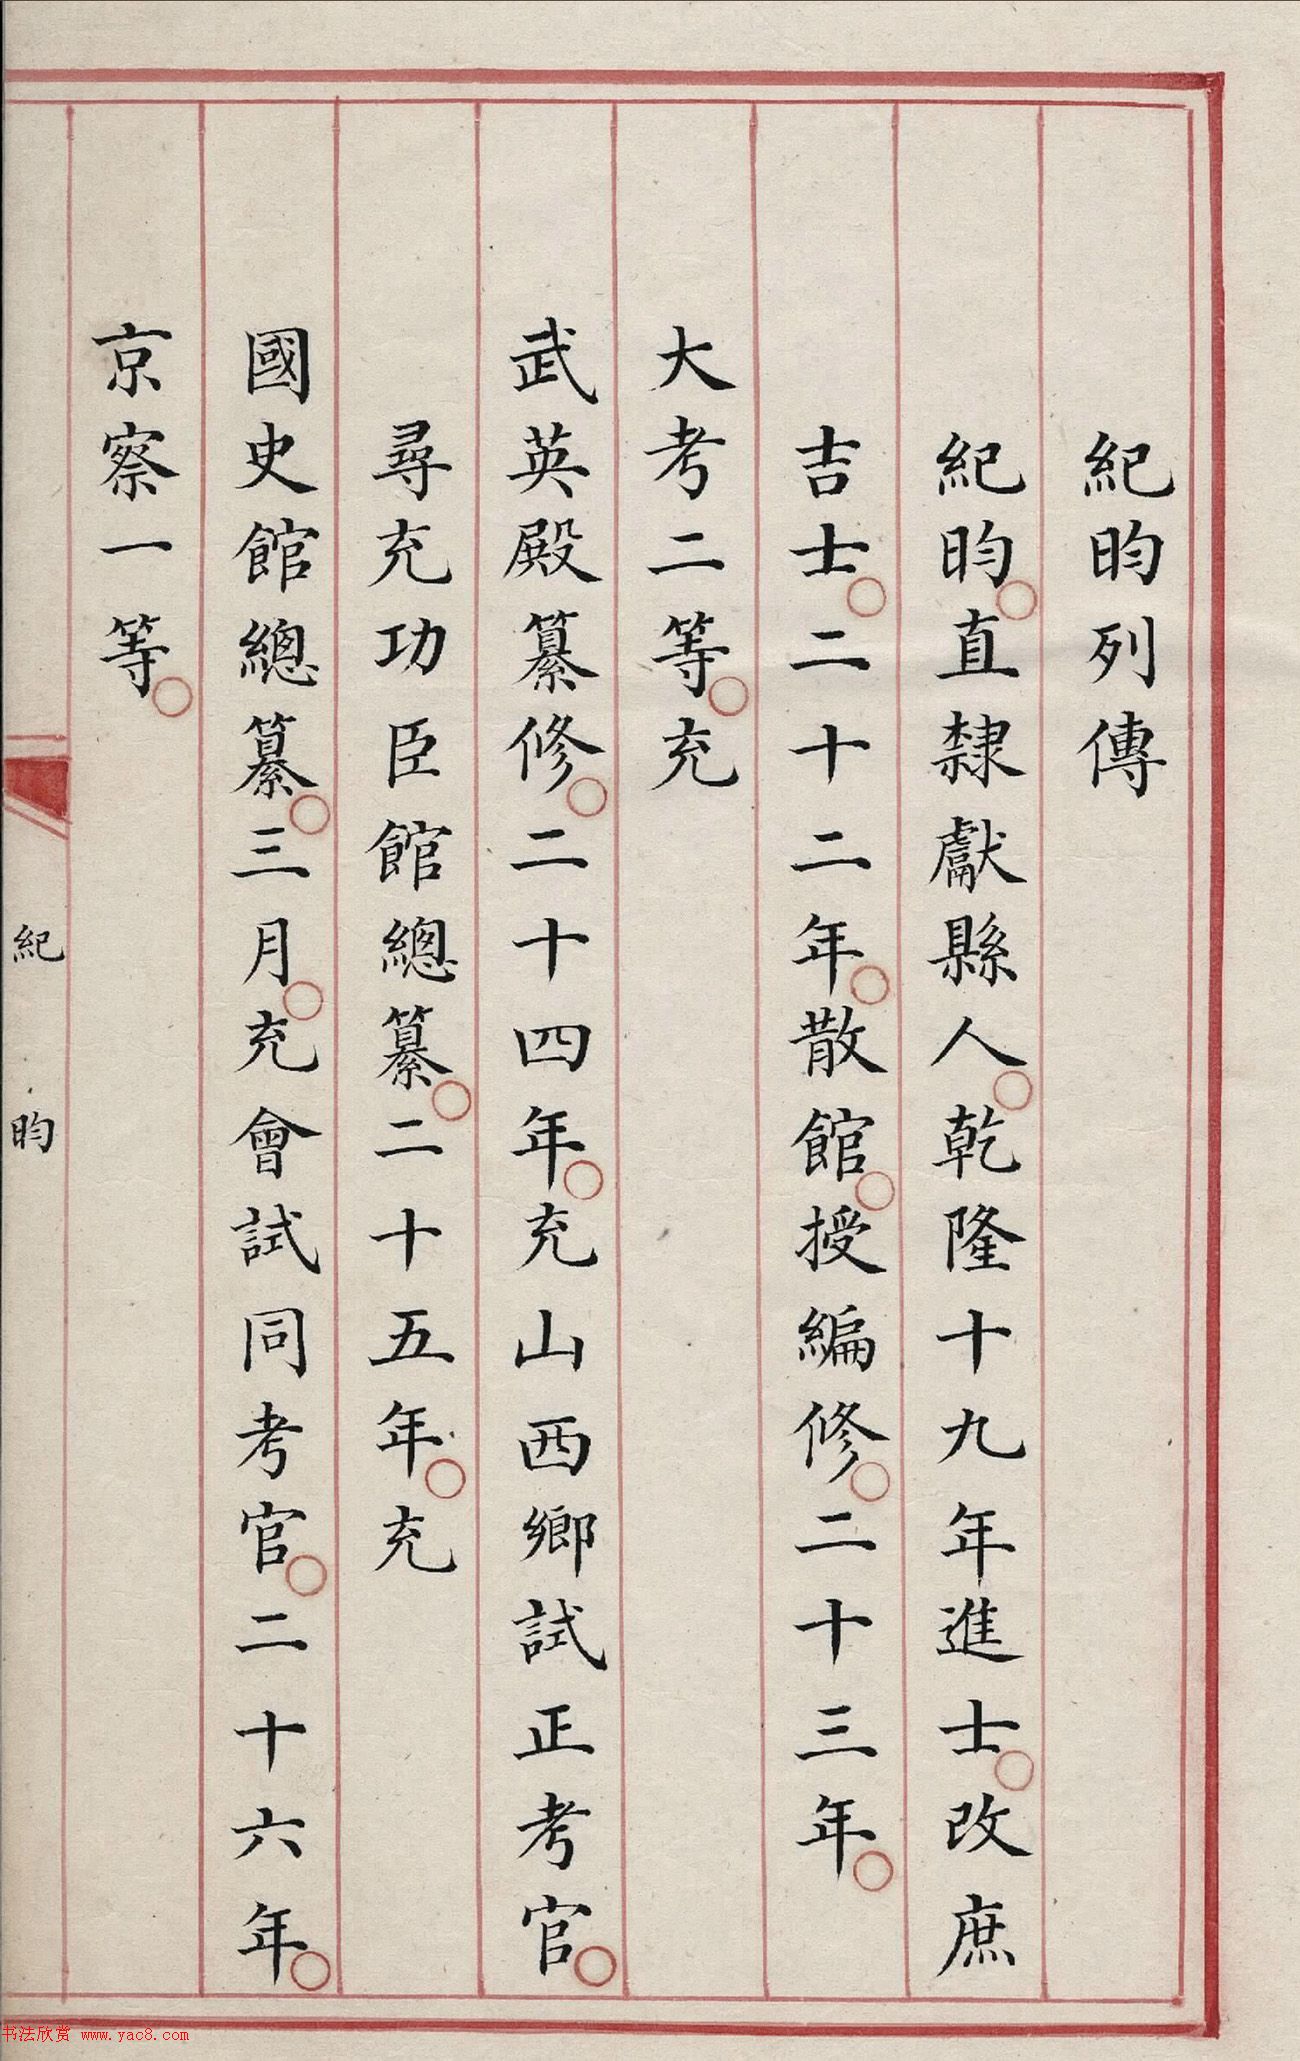 紀昀列傳
紀昀○直隸獻縣人○乾隆十九年進士○改庶
吉士○二十二年○散館○授編修○二十三年○
大考二等○充
武英殿纂修○二十四年○充山西鄉試正考官○
尋充功臣館總纂○二十五年○充
國史館總纂○三月○充會試同考官○二十六年○
京察一等○
紀昀
书法欣赏 www.yac8.com